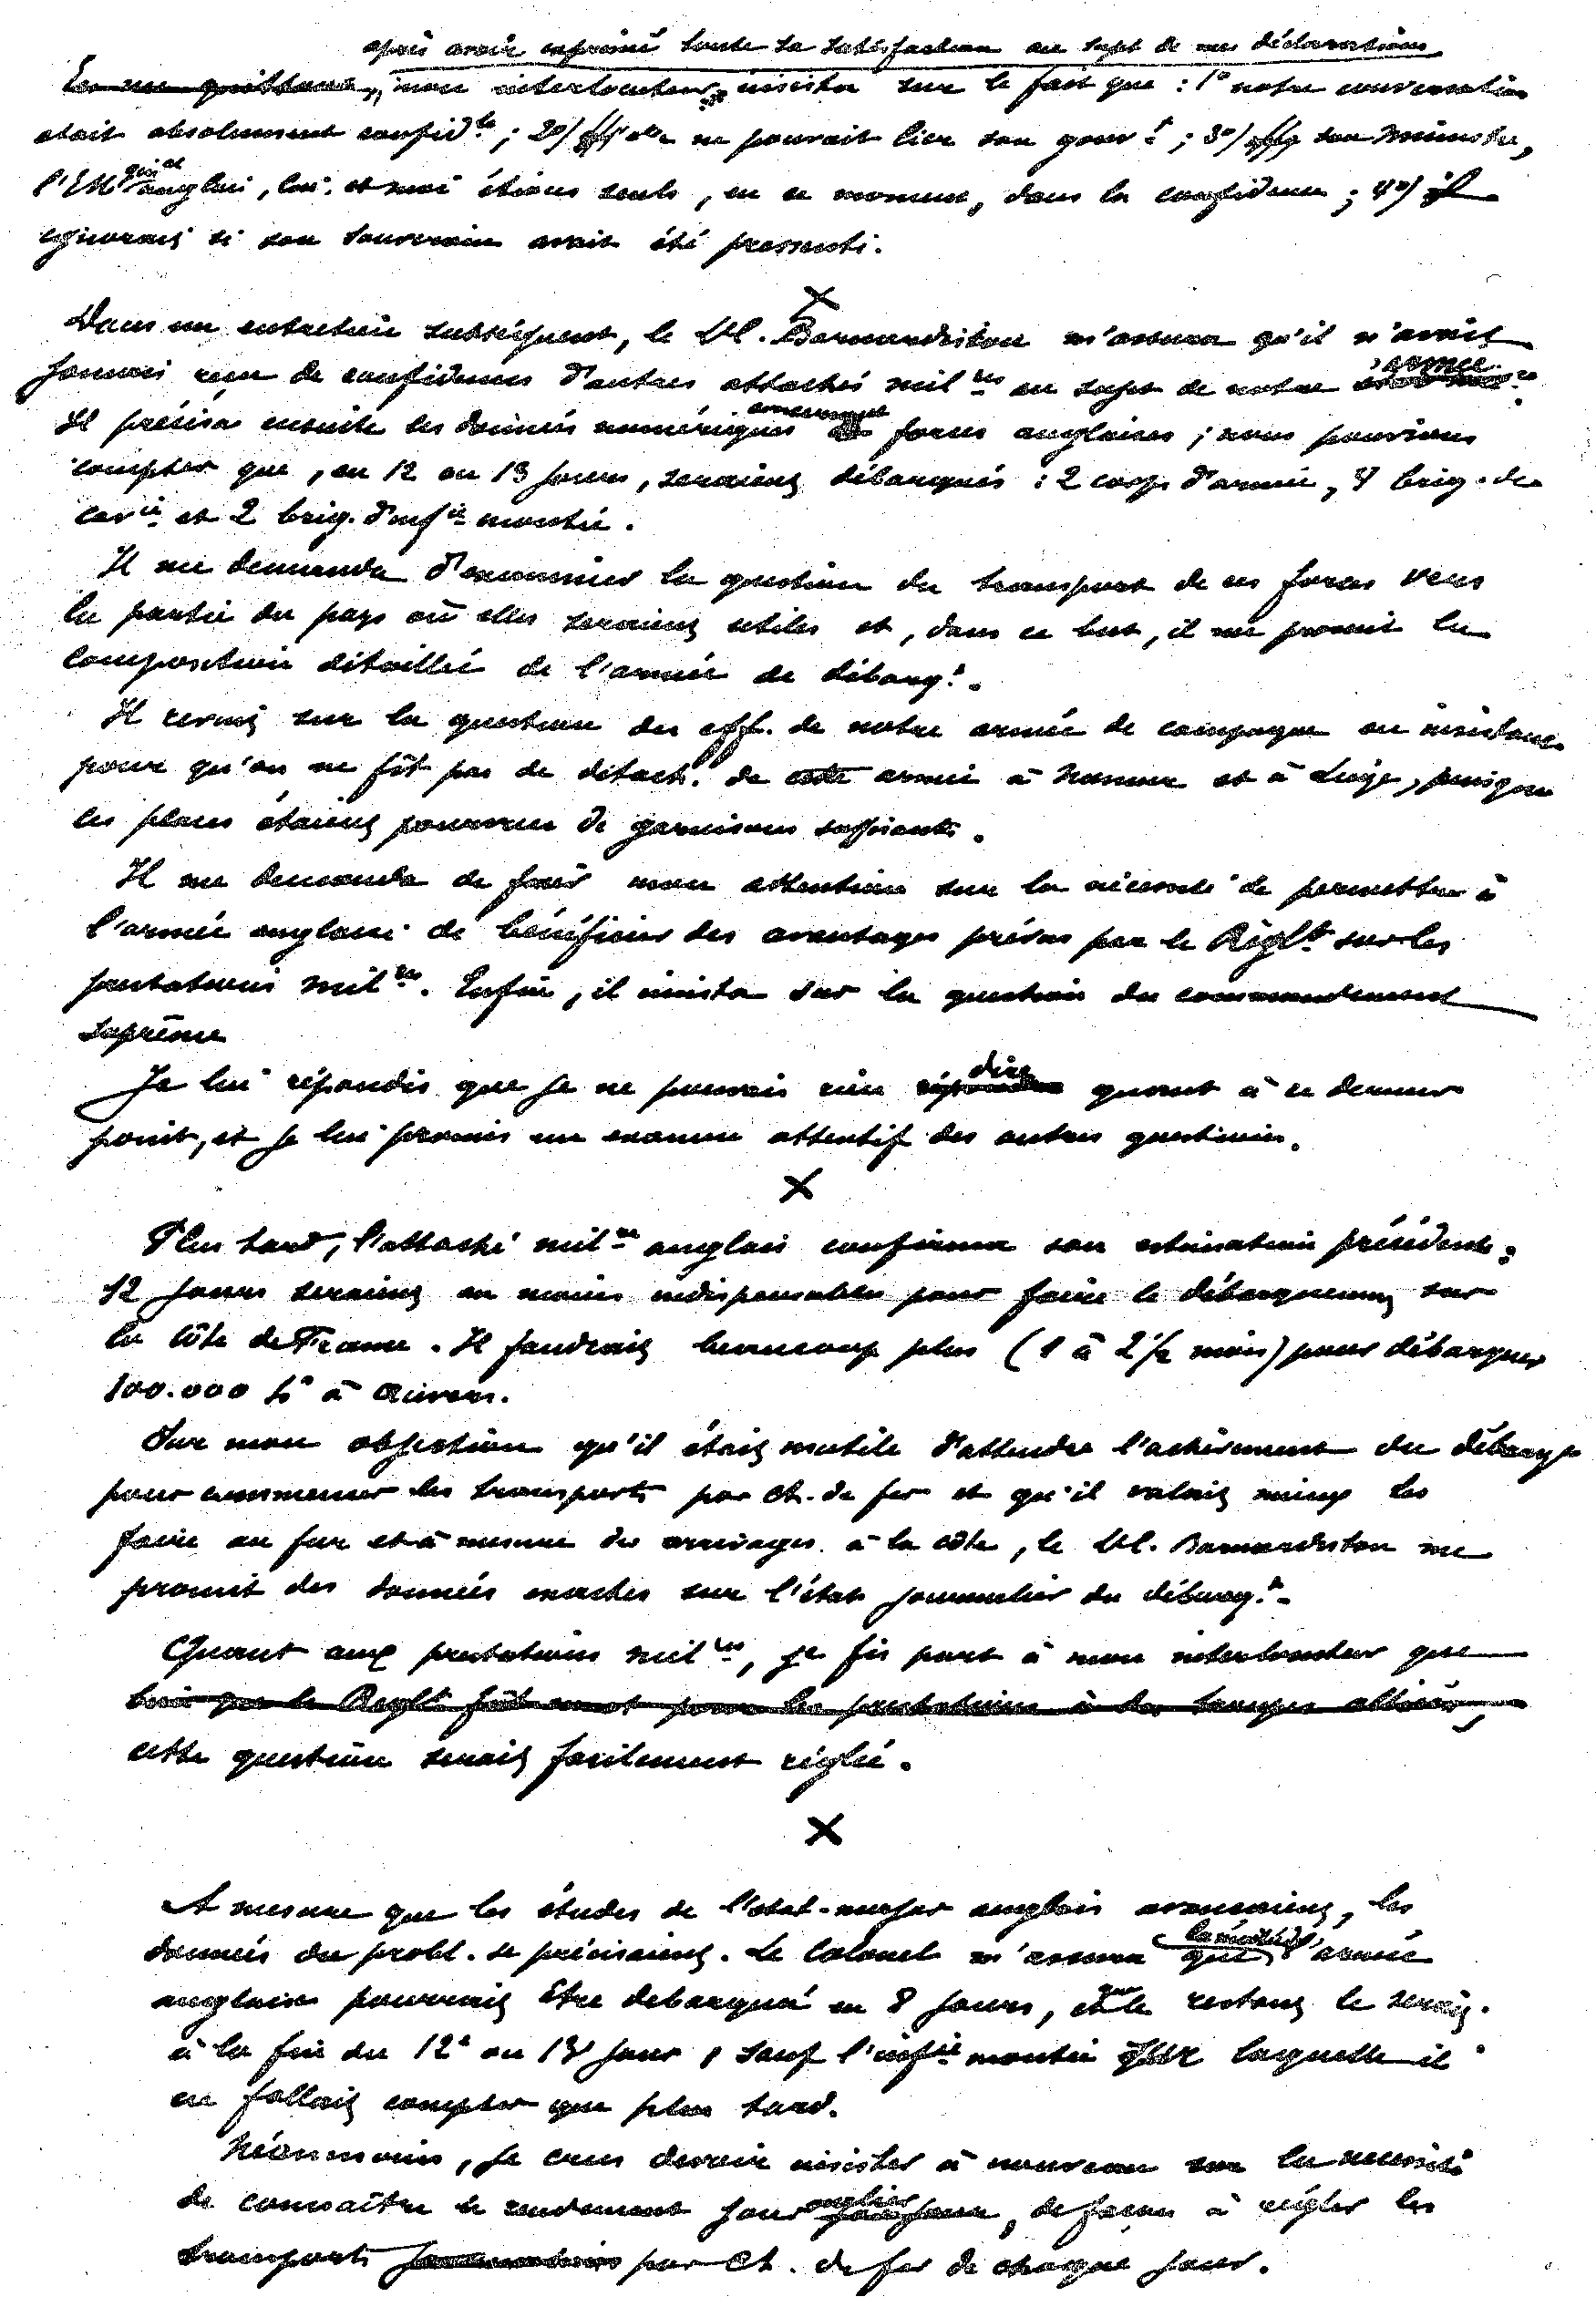 après avoir exprimé toute sa satisfaction au sujet de mes déclarations
En me quittant, mon interlocuteur insista sur le fait que : 1° notre conversation
était absolument confid^lle ; 2°/ elle ne pouvait lier son gouv^t ; 3°/ son Ministre,
l'EM g^ral anglais, lui et moi étions seuls, en ce moment, dans la confidence ; 4°/ il
ignorait si son Souverain avait été pressenti.
X
Dans un entretien subséquent, le Lt Cl. Barnardiston m'assura qu'il n'avait
jamais reçu de confidences d'autres attachés mil^res au sujet de notre armée.
Il précisa ensuite les données numériques concernant les forces anglaises ; nous pouvions
compter que, en 12 ou 13 jours, seraient débarqués : 2 corps d'armée, 4 brig. de
cav^ie et 2 brig. d'inf^ie montée.
Il me demanda d'examiner la question du transport de ces forces vers
la partie du pays où elles seraient utiles et, dans ce but, il me promit la
composition détaillée de l'armée de débarq^t.
Il revint sur la question des eff. de notre armée de campagne en insistant
pour qu'on ne fît pas de détach^ts de cette armée à Namur et à Liége, puisque
ces places étaient pourvues de garnisons suffisantes.
Il me demanda de fixer mon attention sur la nécessité de permettre à
l'armée anglaise de bénéficier des avantages prévus par le Règl^t sur les
prestations mil^res. Enfin, il insista sur la question du commandement
suprême
Je lui répondis que je ne pouvais rien dire quant à ce dernier
point, et je lui promis un examen attentif des autres questions.
X
Plus tard, l'attaché mil^re anglais confirma son estimation précédente :
12 jours seraient au moins indispensables pour faire le débarquement sur
la côte de France. Il faudrait beaucoup plus (1 à 2 1/2 mois) pour débarquer
100.000 h^s à Anvers.
Sur mon objection qu'il était inutile d'attendre l'achèvement du débarq^t
pour commencer les transports par ch. de fer et qu'il valait mieux les
faire au fur et à mesure des arrivages à la côte, le Lt Cl. Barnardiston me
promit des données exactes sur l'état journalier du débarq^t.
Quant aux prestations mil^res, je fis part à mon interlocuteur que
cette question serait facilement réglée.
X
A mesure que les études de l'état-major anglais avançaient, les
données du probl. se précisaient. Le Colonel m'assura que la moitié de l'armée
anglaise pourrait être débarquée en 8 jours, et que le restant le serait
à la fin du 12^e ou 13^e jour, sauf l'inf^ie montée sur laquelle il
ne fallait compter que plus tard.
Néanmoins, je crus devoir insister à nouveau sur la nécessité
de connaître le rendement journalier, de façon à régler les
transports par ch. de fer de chaque jour.